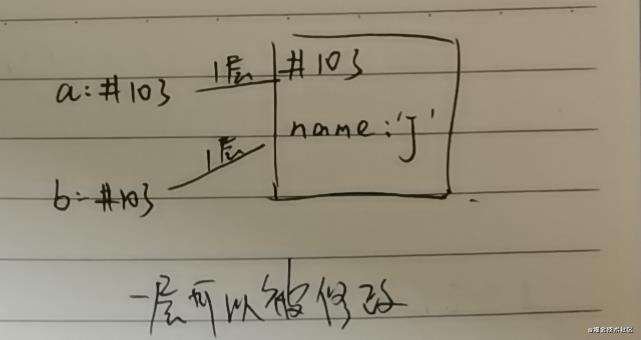 1层 #103
a:#103
name:'J'
1层
b:#103
一层可以被修改
@稀土掘金技术社区